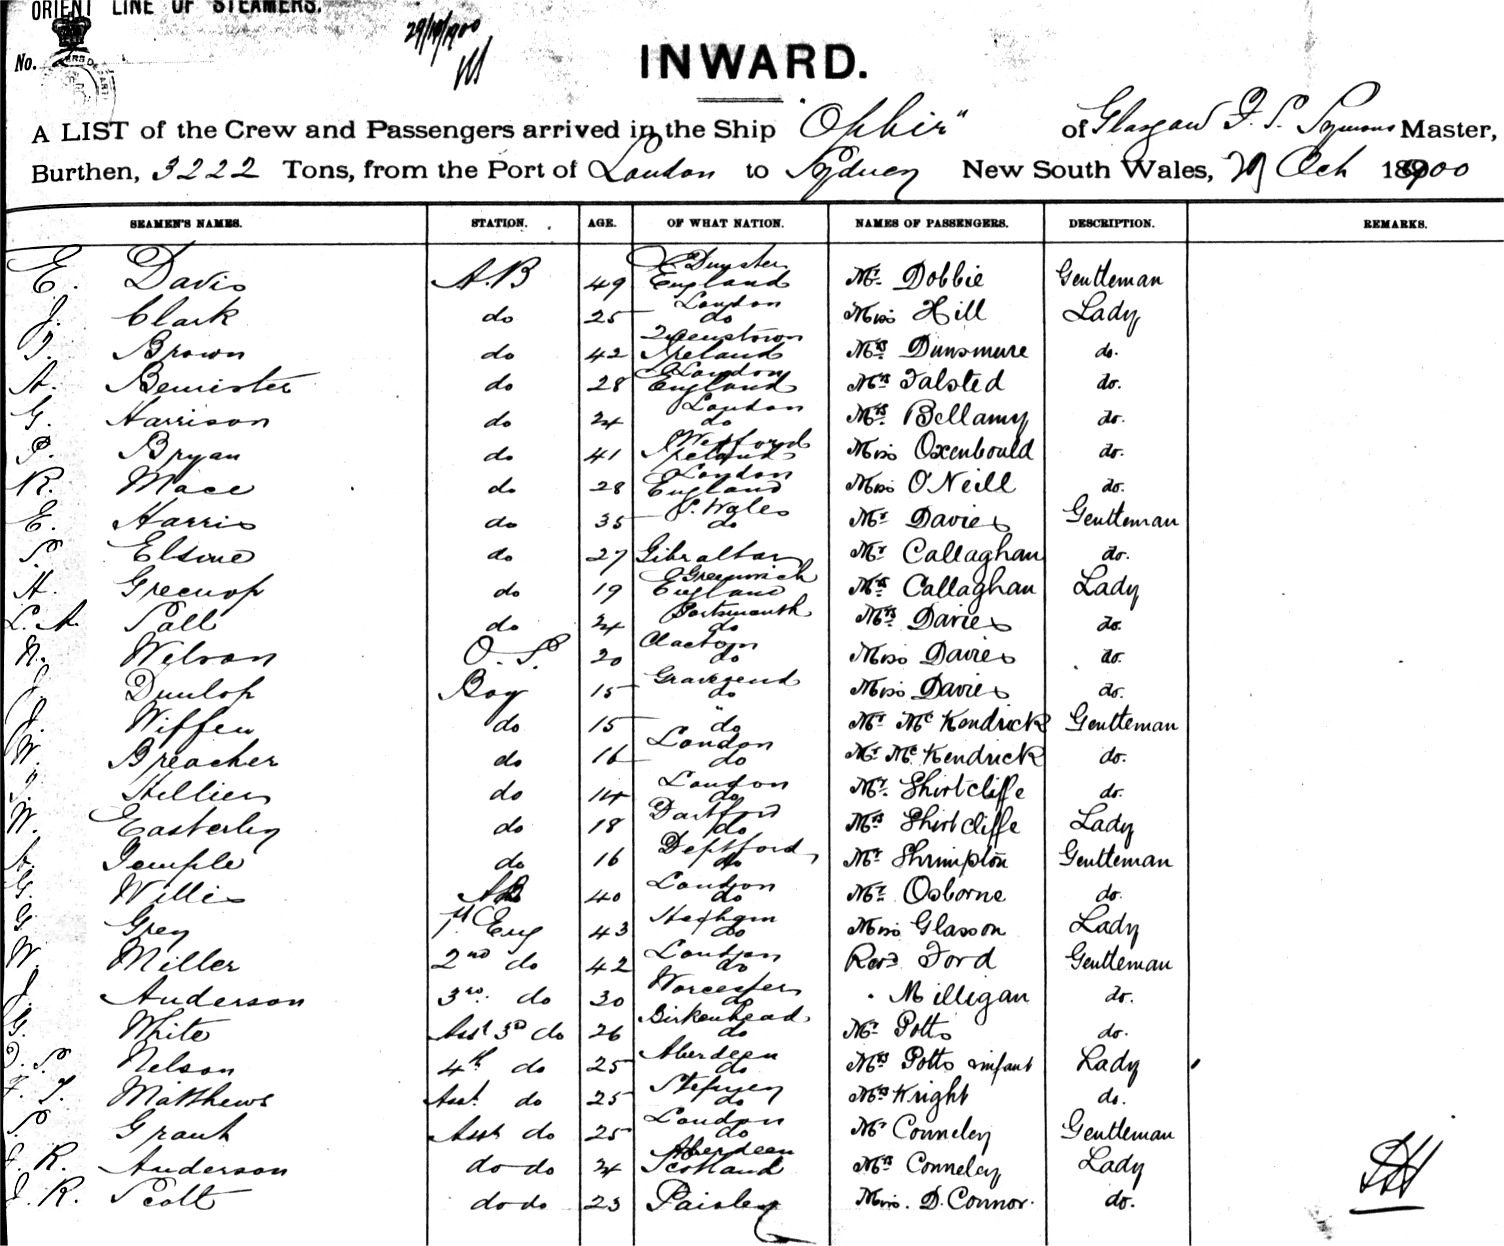 ORIENT LINE OF STEAMERS.
29/10/1900
No.
INWARD.
A LIST of the Crew and Passengers arrived in the Ship "Ophir" of Glasgow F. S. Symons Master,
Burthen, 3222 Tons, from the Port of London to Sydney New South Wales, 29 Oct 1900
SEAMEN'S NAMES. STATION. AGE. OF WHAT NATION. NAMES OF PASSENGERS. DESCRIPTION. REMARKS.
E. Davis A.B 49 England Mr. Dobbie Gentleman
J. Clark do 25 London do Miss Hill Lady
Brown do 42 Queenstown Ireland Mrs Dunsmure do.
A. Bemister do 28 London England Mrs Talsted do.
G. Harrison do 24 London do Mrs Bellamy do.
P. Bryan do 41 Wexford Ireland Miss Oxenbould do.
R. Mace do 28 London England Miss O'Neill do.
E. Harris do 35 S. Wales do Mr Davies Gentleman
do 27 Gibraltar Mr Callaghan do.
H. Greenop do 19 Greenwich England Mrs Callaghan Lady
L. A. do 24 Portsmouth do Mrs Davies do.
N. Welson O.S. 20 Clacton do Miss Davies do.
J. Dunlop Boy 15 Gravesend do Miss Davies do.
J. Wiffen do 15 " do Mr McKendrick Gentleman
W. Breacher do 16 London do Mr McKendrick do.
Hellier do 14 London do Mr. Shirtcliffe do.
W. Easterley do 18 Dartford do Mrs Shirtcliffe Lady
Temple do 16 Deptford do Mr Shrimpton Gentleman
G. Willis AB 40 London do Mr Osborne do.
G. Grey 1st Eng 43 Hexham do Miss Glasson Lady
W. Miller 2nd do 42 London do Revd Ford Gentleman
J. Anderson 3rd. do 30 Worcester do Milligan do.
G. White Asst 3rd do 26 Birkenhead do Mr Potts do.
Nelson 4th do 25 Aberdeen do Mrs Potts infant Lady
F. T. Matthews Asst. do 25 Stepney do Mrs Knight do.
Grant Asst do 25 London do Mr Conneley Gentleman
J. R. Anderson do do 24 Aberdeen Scotland Mrs Conneley Lady
J. R. Scott do do 23 Paisley Miss. D. Connor. do.